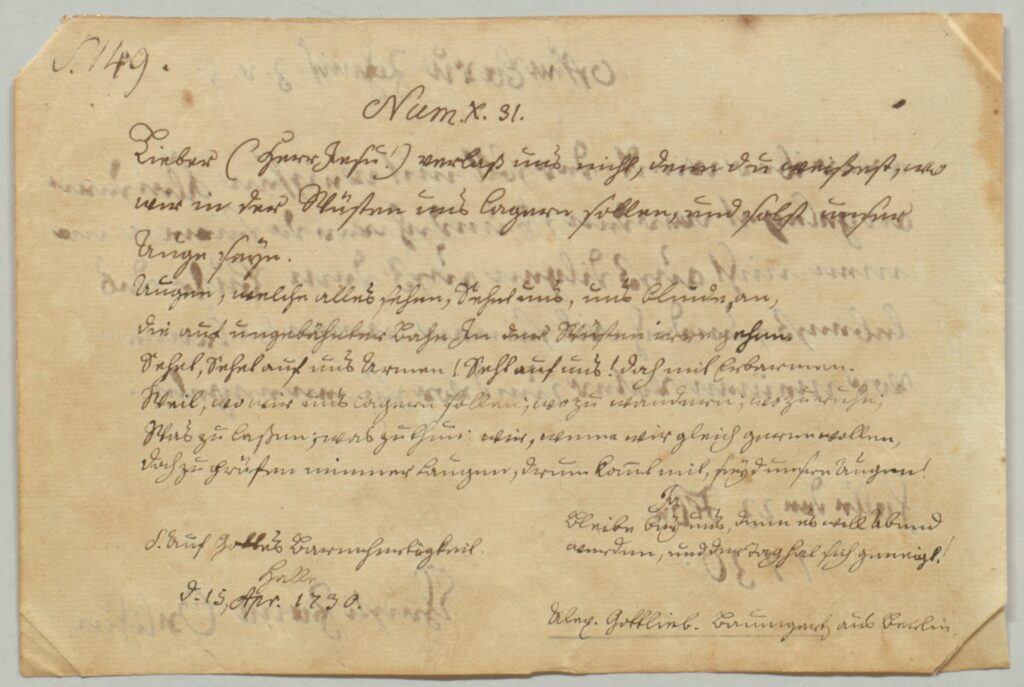 S. 149.
Num. X. 31.
Lieber (Herr Jesu!) verlaß uns nicht, denn du weißest, wo
wir in der Wüsten uns lagern sollen, und solst unser
Auge seyn.
Augen, welche alles sehen, Sehet uns, uns blinde, an,
die auf ungebähnter Bahn In der Wüsten irre gehen.
Sehet, Sehet auf uns Armen! Seht auf uns! doch mit Erbarmen.
Weil, wo wir uns lagern sollen; wozu wandern; wo zu ruhn;
Was zu laßen; was zu thun; wir, wenn wir gleich gerne wollen,
doch zu prüfen nimmer taugen, drum komt mit, seyd unsre Augen!
Ja
Bleibe bey uns, denn es will Abend
werden, und der Tag hat sich geneiget!
S. Auf Gottes Barmherzigkeit.
Halle
d. 15, Apr. 1730.
Alex. Gottlieb. Baumgarten aus Berlin.